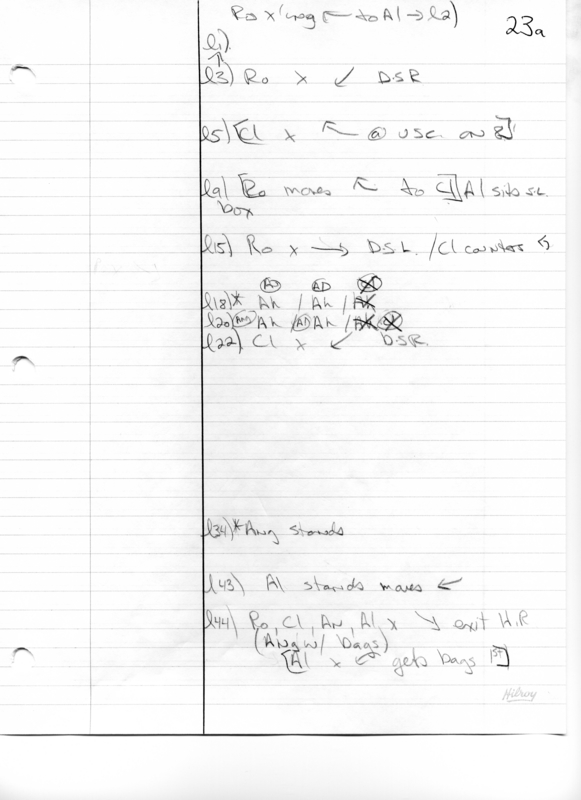 Ro x'ing ← to Al → l2)
23a
l1).
↑
l3) Ro x ↙ D.S.R
l5) [Cl x ↖ @ USC. on 8]
l9) [Ro moves ↖ to Cl] Al sits S.L.
box
l15) Ro x → D.S.L. /Cl counters
AD AD
l18)* Ah / Ah /
l20) Ang Ah / AD Ah /
l22) Cl x ↙ D.S.R.
l34)* Ang stands
l43) Al stands moves ↙
l44) Ro, Cl, An, Al x ↘ exit H.R
(Ang w/ bags)
[Al x gets bags 1st]